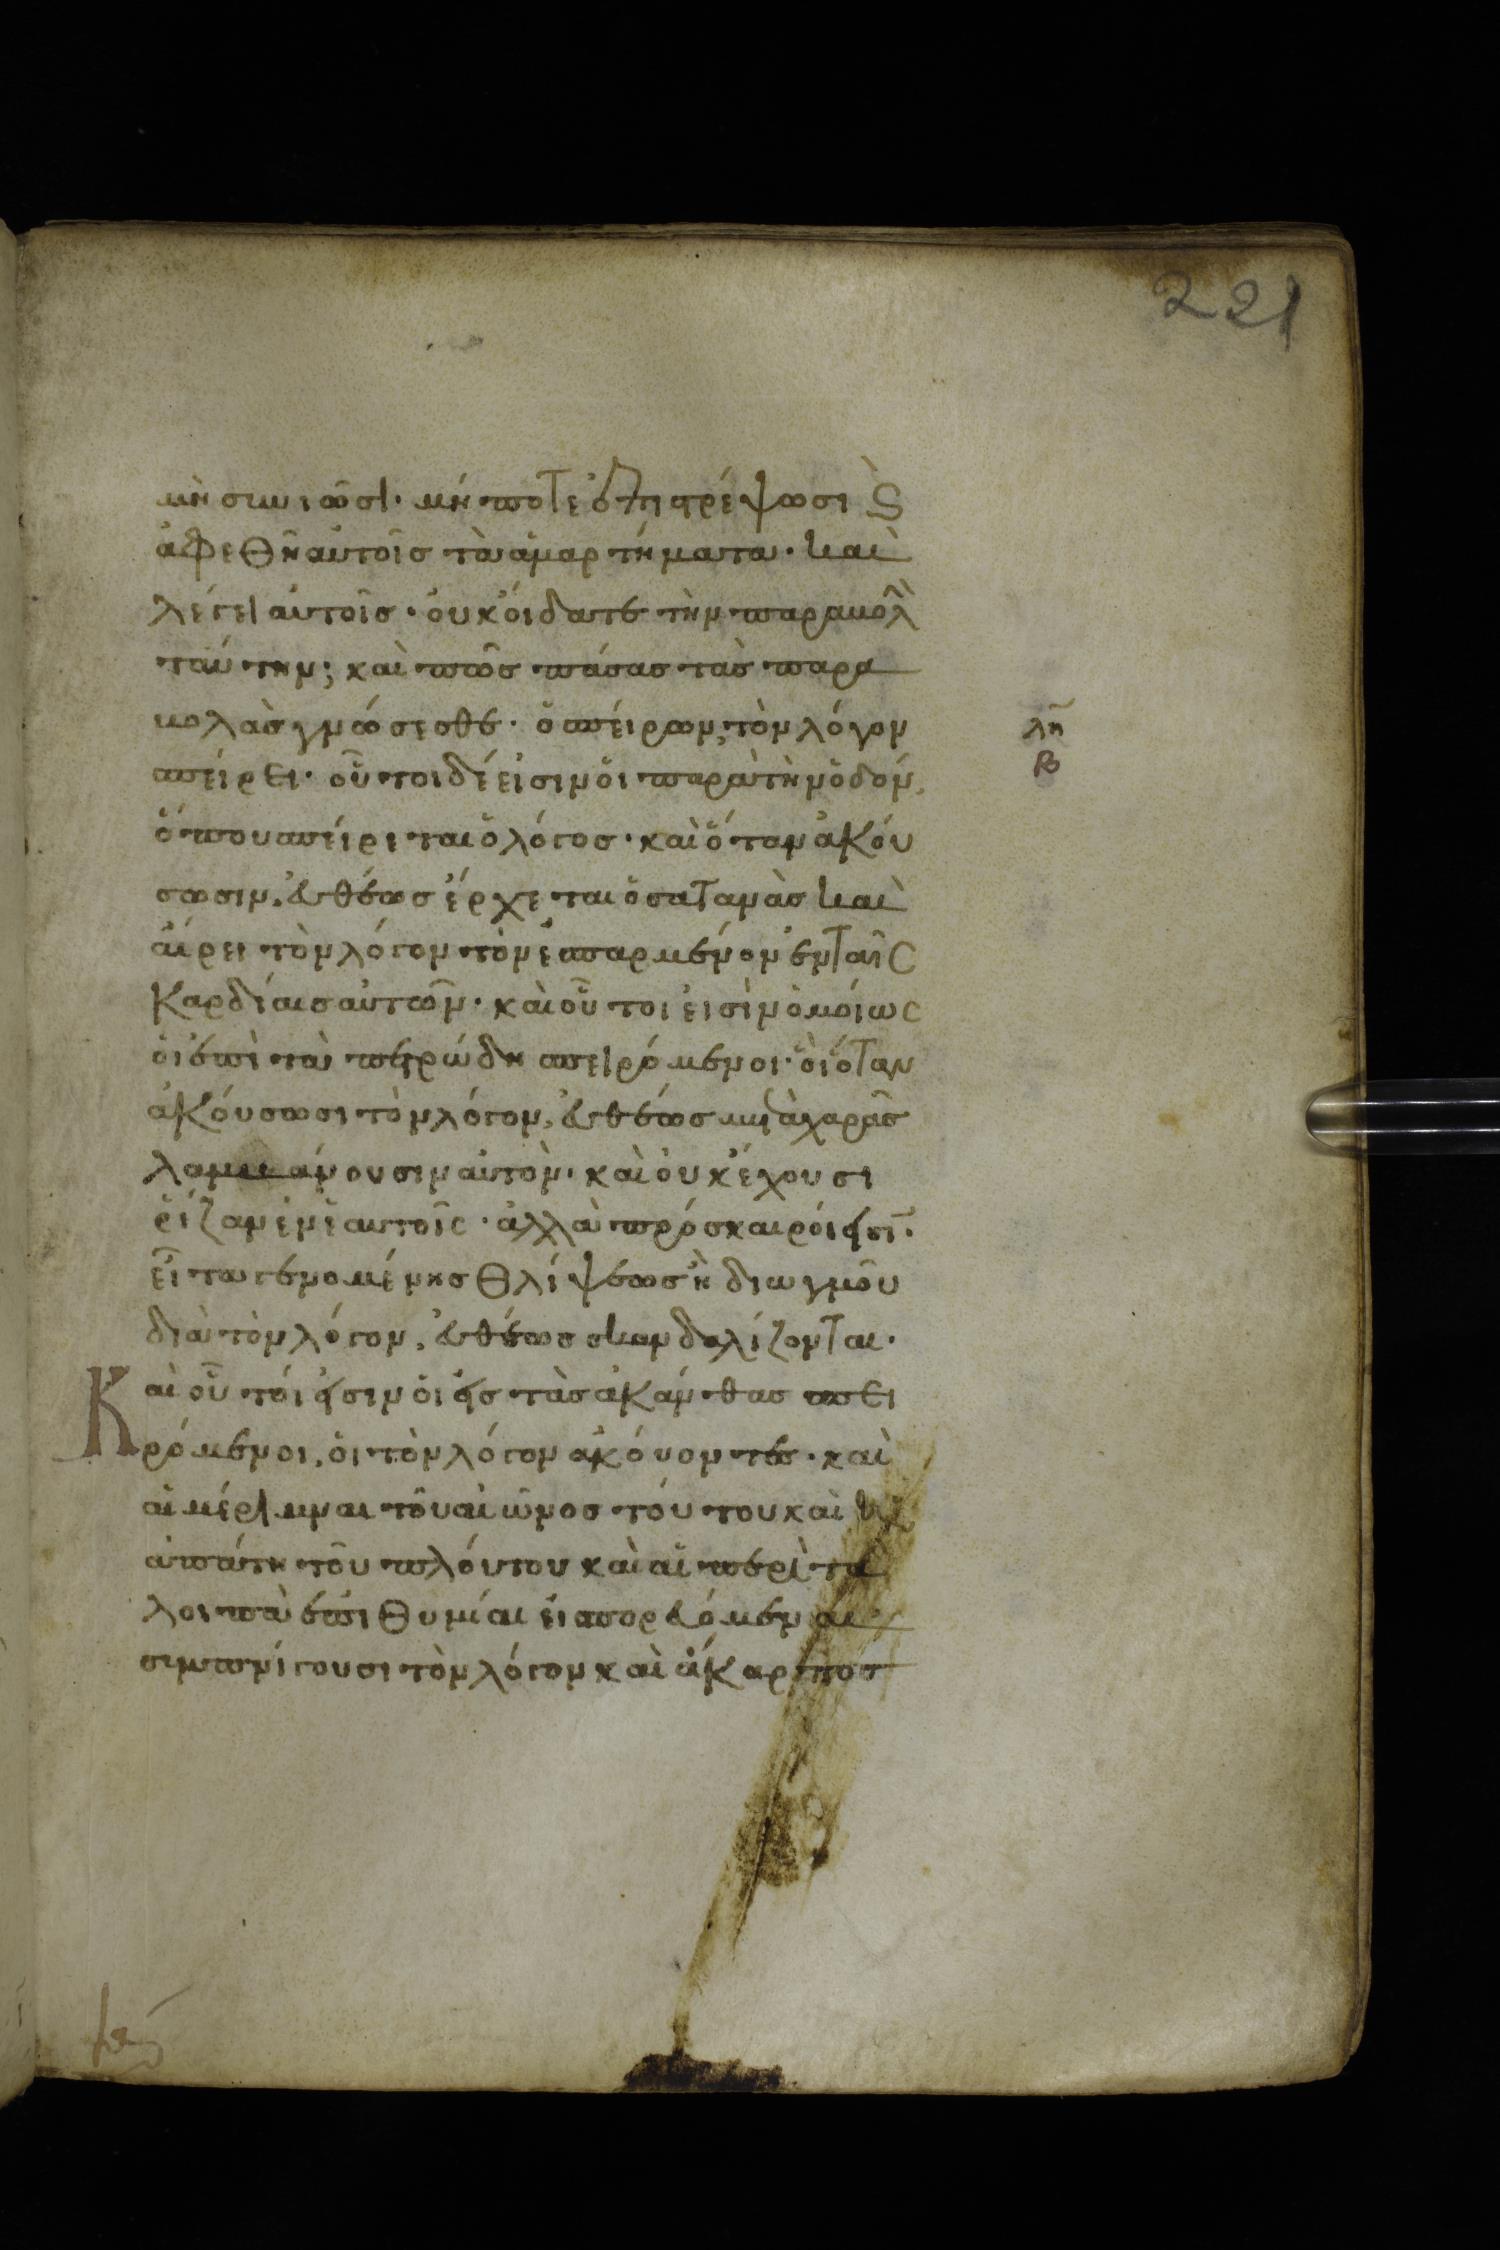 221
μὴ συνιῶσι· μήποτε ἐπιστρέψωσι ϗ
ἀφεθῆ αὐτοῖς τὰ ἁμαρτήματα· καὶ
λέγει αὐτοῖς· οὐκ οἴδατε τὴν παραβολὴ
ταύτην; καὶ πῶς πάσας τὰς παρα
βολὰς γνώσεσθε· ὁ σπείρων, τὸν λόγον
σπείρει· οὗτοι δέ εἰσιν οἱ παρὰ τὴν ὁδόν,
ὅπου σπείρεται ὁ λόγος· καὶ ὅταν ἀκού
σωσιν, εὐθέως ἔρχεται ὁ σατανὰς καὶ
αἴρει τὸν λόγον τὸν ἐσπαρμένον ἐν ταῖς
καρδίαις αὐτῶν· καὶ οὗτοι εἰσὶν ὁμοίως
οἱ ἐπὶ τὰ πετρώδη σπειρόμενοι· οἱ ὅταν
ἀκούσωσι τὸν λόγον, εὐθέως μετὰ χαρᾶς
λαμβάνουσιν αὐτὸν· καὶ οὐκ ἔχουσι
ῥίζαν ἐν ἑαυτοῖς· ἀλλὰ πρόσκαιροί εἰσι·
εἶτα γενομένης θλίψεως ἢ διωγμοῦ
διὰ τὸν λόγον, εὐθέως σκανδαλίζονται·
Καὶ οὗτοί εἰσιν οἱ εἰς τὰς ἀκάνθας σπει
ρόμενοι, οἱ τὸν λόγον ἀκούοντες· καὶ
αἱ μέριμναι τοῦ αἰῶνος τούτου καὶ ἡ
ἀπάτη τοῦ πλούτου καὶ αἱ περὶ τὰ
λοιπὰ ἐπιθυμίαι εἰσπορευόμεναι
συμπνίγουσι τὸν λόγον καὶ ἄκαρπος
λη
β